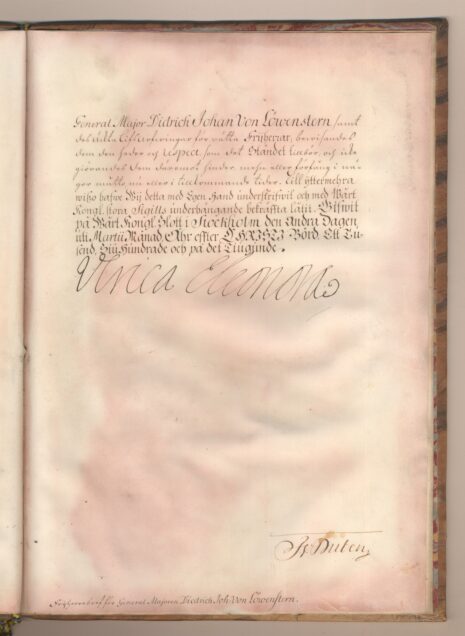 General Major Didrich Johan Von Löwenstern samt
des äkta Lifs Arfwingar för rätta Fryherrar, bewisandes
dem den heder och respect som det Ståndet tilhör, och icke
giörandes dem häremot hinder, mehn eller förfång i nå-
gor måtto nu eller i tilkommande tider. Till yttermehra
wißo hafwe Wij detta med Egen Hand underskrifwit och med Wårt
Kongl. stora Sigills underhängande bekräffta låtit. Gifwit
på Wårt Kongl. Slott i Stockholm den Andra Dagen
uti Martii Månad, Åhr effter CHRISTI Börd Ett Tu-
send, Siu Hundrade och på det Tiugunde.
Ulrica Eleonora
Düben
för General Majoren Diedrich Joh. Von Löwenstern.